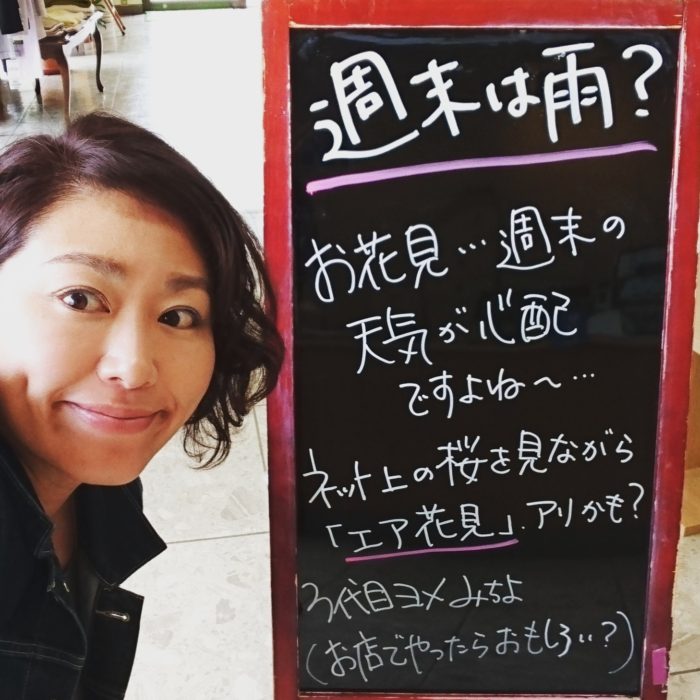 週末は雨?
お花見…週末の
天気が心配
ですよね〜…
ネット上の桜を見ながら
「エア花見」アリかも?
3代目ヨメみちよ
(お店でやったらおもしろい?)